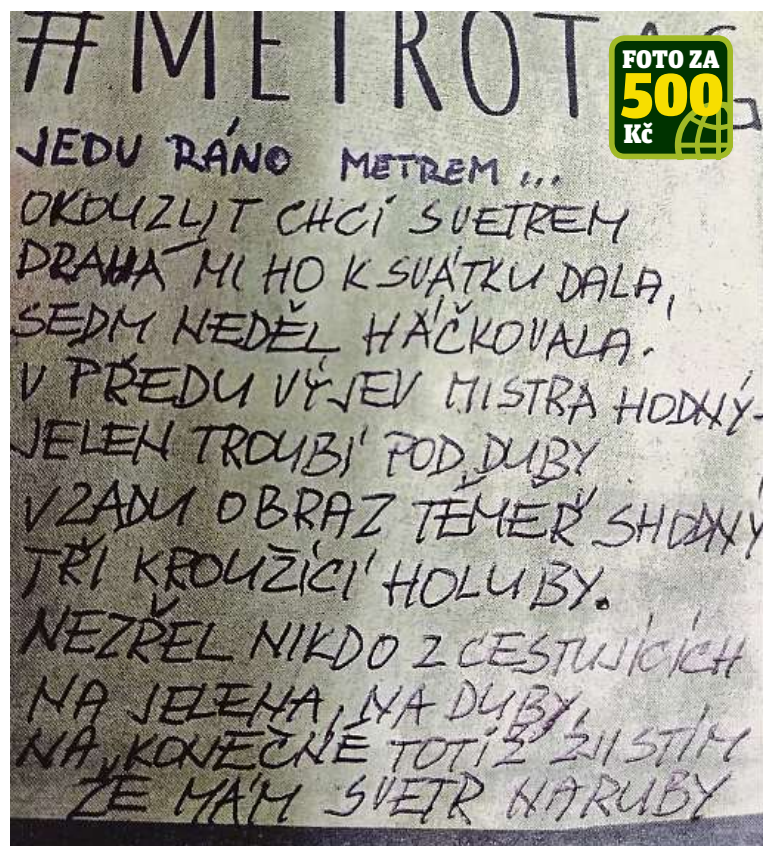 #METROT
FOTO ZA
500
Kč
JEDU RÁNO METREM...
OKOUZLIT CHCI SVETREM
DRAHÁ MI HO K SVÁTKU DALA,
SEDM NEDĚL HÁČKOVALA.
V PŘEDU VÝJEV MISTRA HODNÝ-
JELEN TROUBÍ POD DUBY
VZADU OBRAZ TÉMĚŘ SHODNÝ
TŘI KROUŽÍCÍ HOLUBY.
NEZŘEL NIKDO Z CESTUJÍCÍCH
NA JELENA, NA DUBY,
NA „KONEČNÉ TOTIŽ ZJISTÍM
ŽE MÁM SVETR NARUBY